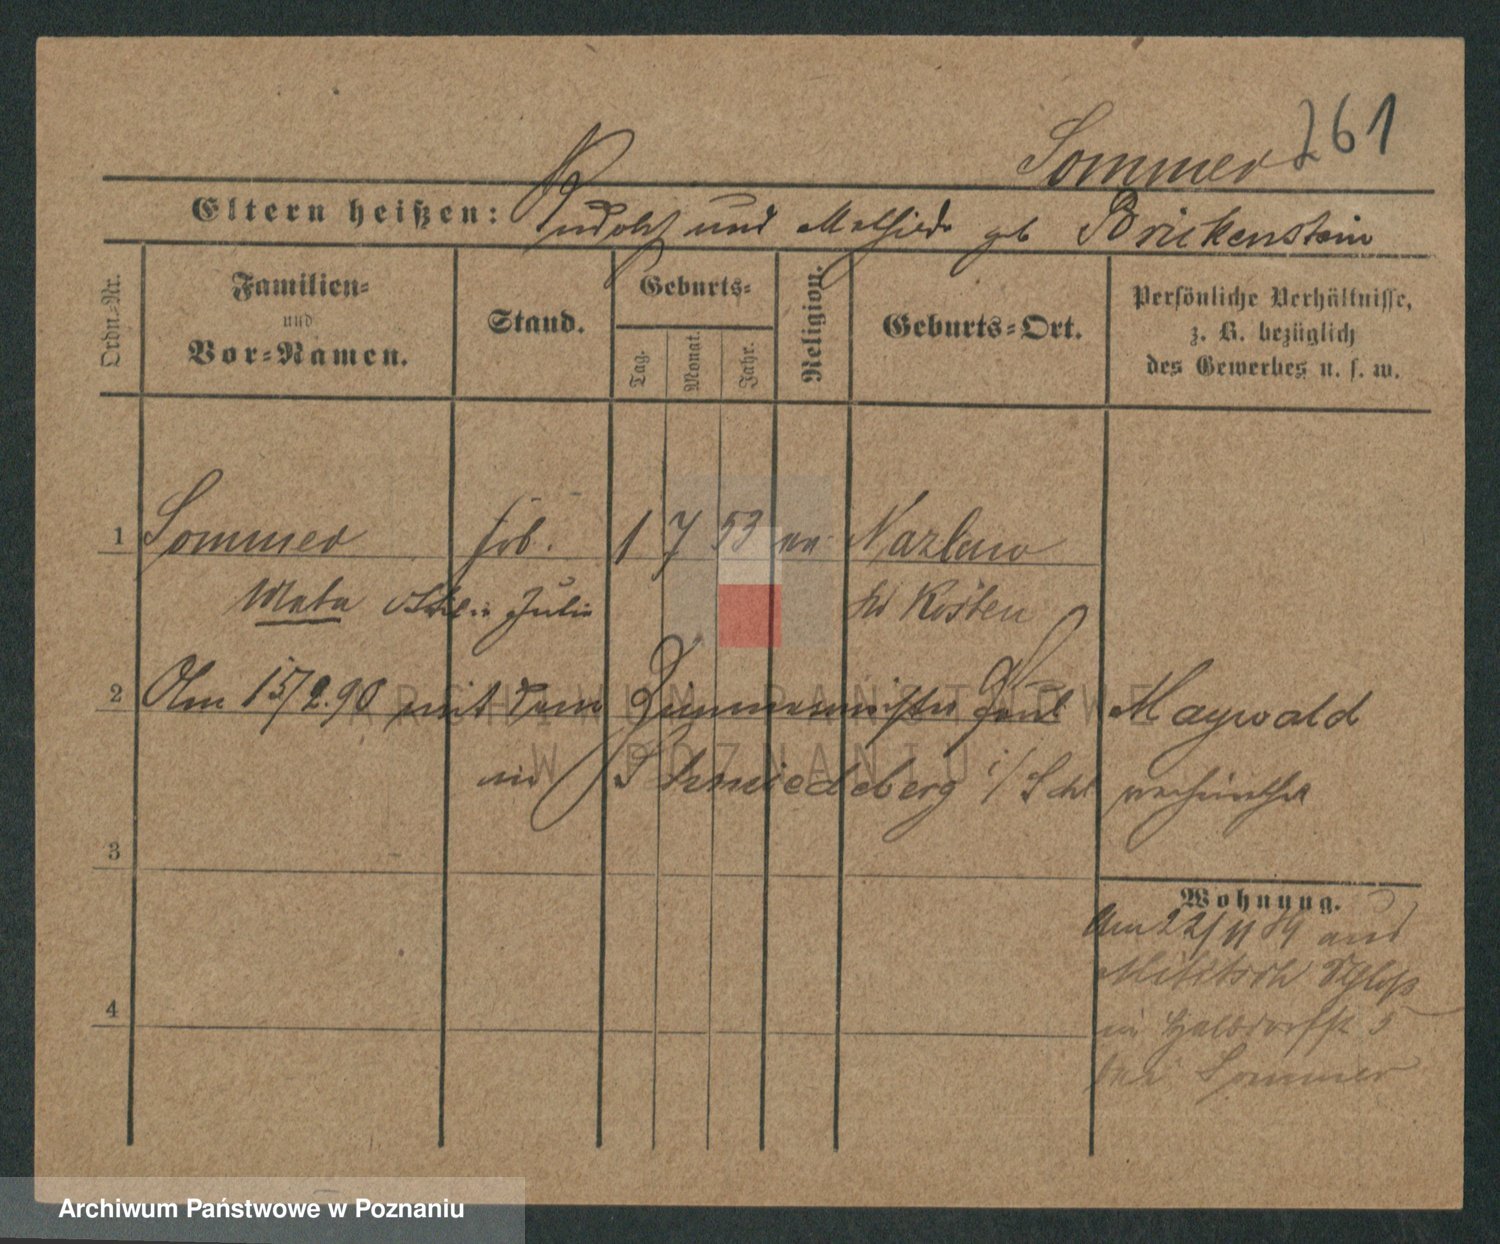 Sommer 261
Eltern heißen: Rudolf und Mathilde geb Brickenstein
Ordn.-Nr.
Familien- und Vor-Namen.
Stand.
Geburts-
Tag. Monat. Jahr.
Religion.
Geburts-Ort.
Persönliche Verhältnisse,
z. B. bezüglich
des Gewerbes u. s. w.
1 Sommer 1 7 53 Nazlaw
Meta Julie Kr Kosten
2 Am 15/2.90 mit dem Zimmermeister Paul Maywald
in Schmiedeberg i/Schl verheirathet
3
Wohnung.
Am 22/11 89 aus
Militsch Schloß
in Halbdorfstr 5
bei Sommer
4
ARCHIWUM PAŃSTWOWE
W POZNANIU
Archiwum Państwowe w Poznaniu